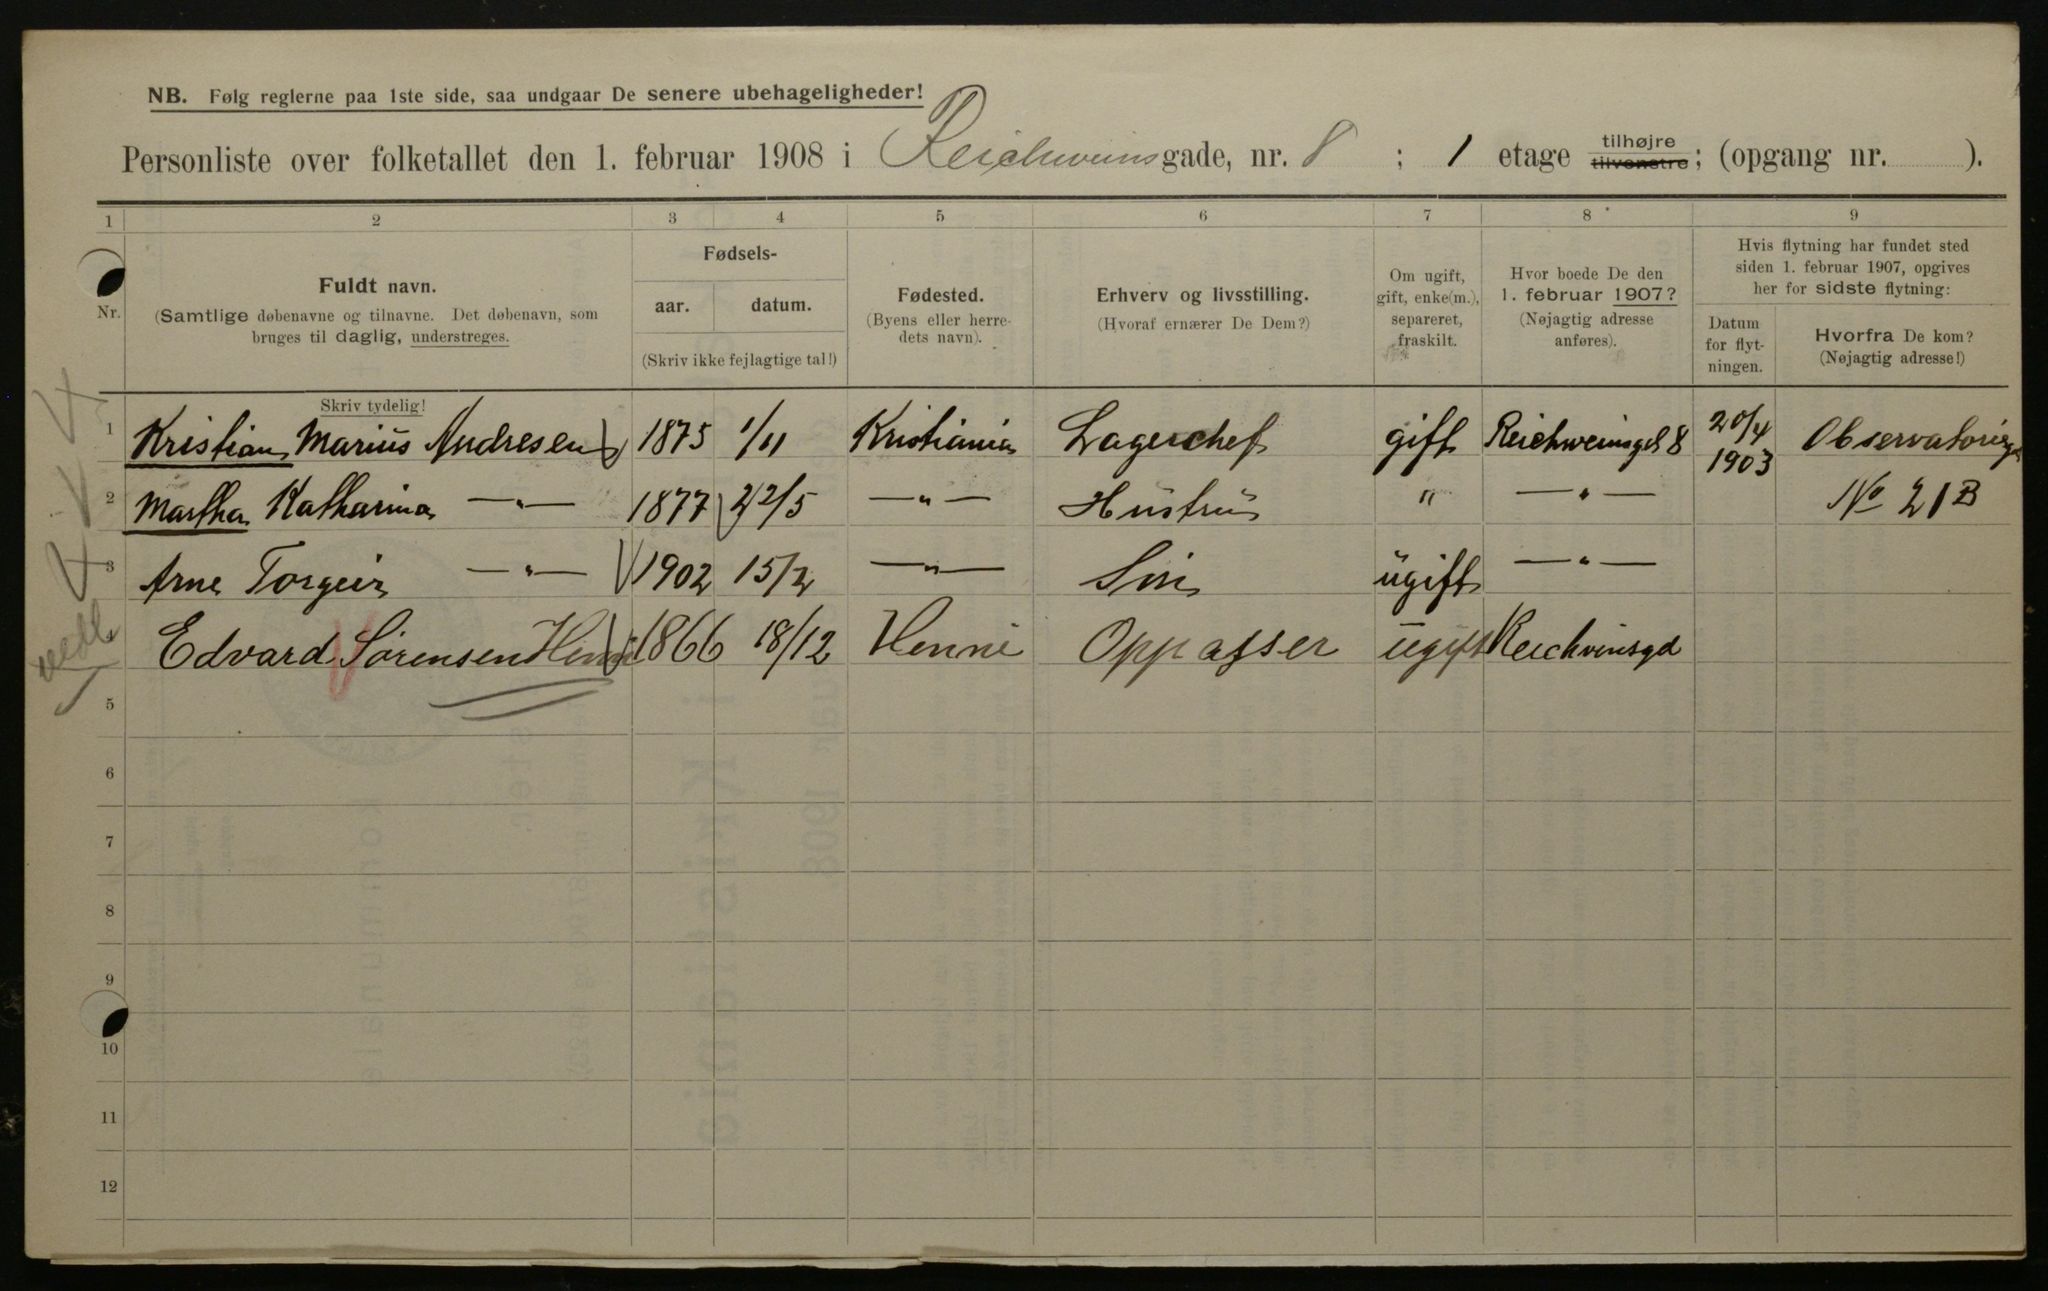 NB. Følg reglerne paa 1ste side, saa undgaar De senere ubehageligheder!
Personliste over folketallet den 1. februar 1908 i Reichweinsgade, nr. 8 ; 1 etage tilhøjre tilvenstre; (opgang nr. ).
1 2 3 4 5 6 7 8 9
Nr.
Fuldt navn.
(Samtlige døbenavne og tilnavne. Det døbenavn, som
bruges til daglig, understreges.
Skriv tydelig!
Fødsels-
aar. datum.
(Skriv ikke fejlagtige tal!)
Fødested.
(Byens eller herre-
dets navn).
Erhverv og livsstilling.
(Hvoraf ernærer De Dem?)
Om ugift,
gift, enke(m.),
separeret,
fraskilt.
Hvor boede De den
1. februar 1907?
(Nøjagtig adresse
anføres).
Hvis flytning har fundet sted
siden 1. februar 1907, opgives
her for sidste flytning:
Datum
for flyt-
ningen.
Hvorfra De kom?
(Nøjagtig adresse!)
1 Kristian Marius Andresen 1875 1/11 Kristiania Lagerchef gift Reichweinsgd 8 20/4 1903 Observatoriegd
2 Martha Katharina —"— 1877 22/5 —"— Hustru " —"— No 21B
3 Arne Torgeir —"— 1902 15/2 —"— Sön ugift —"—
Edvard Sørensen Henni 1866 18/12 Henni Oppasser ugift Reichvinsgd
5
6
7
8
9
10
11
12